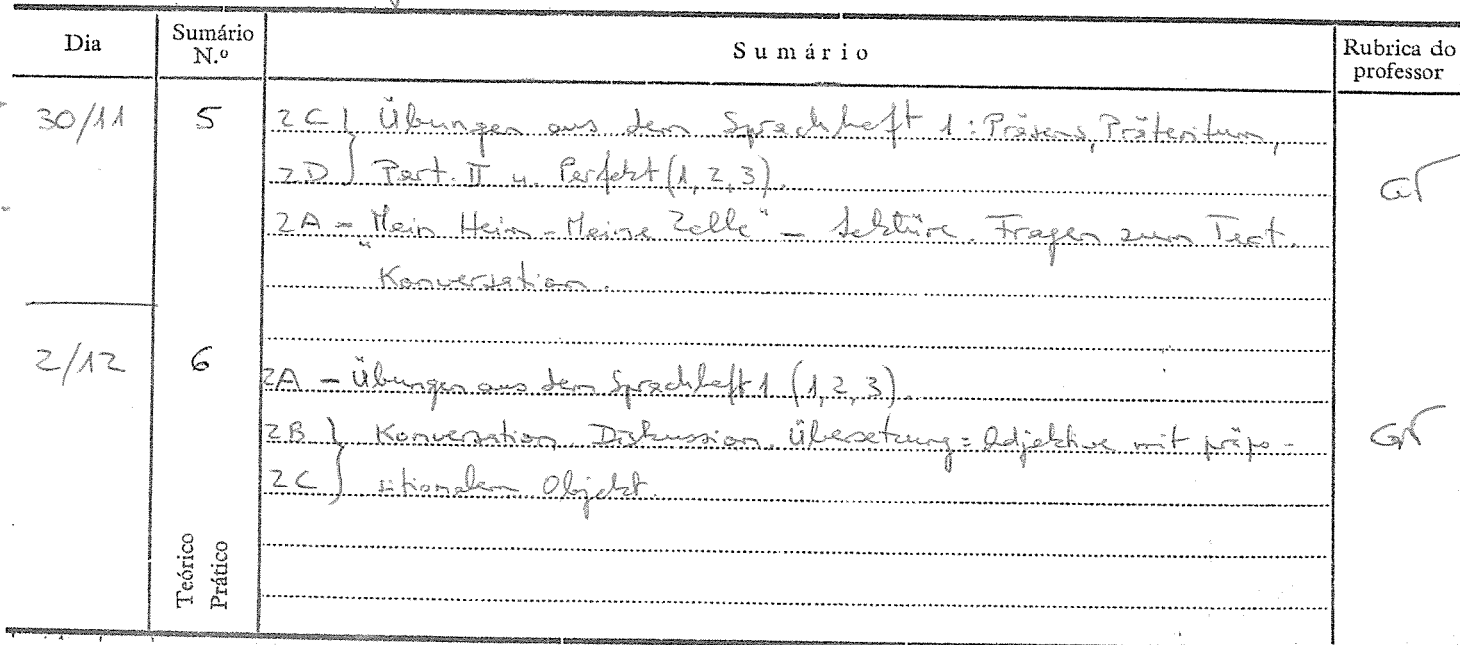 Dia Sumário N.º Sumário Rubrica do professor
30/11 5 2C } Übungen aus dem Sprachheft 1: Präsens, Präteritum,
2D } Part. II u. Perfekt (1, 2, 3).
2A - "Mein Heim - Meine Zelle" - Lektüre. Fragen zum Text.
Konversation.
2/12 6 2A - Übungen aus dem Sprachheft 1 (1, 2, 3).
2B } Konversation, Diskussion, Übersetzung = Adjektive mit präpo-
2C } sitionalem Objekt.
Teórico
Prático